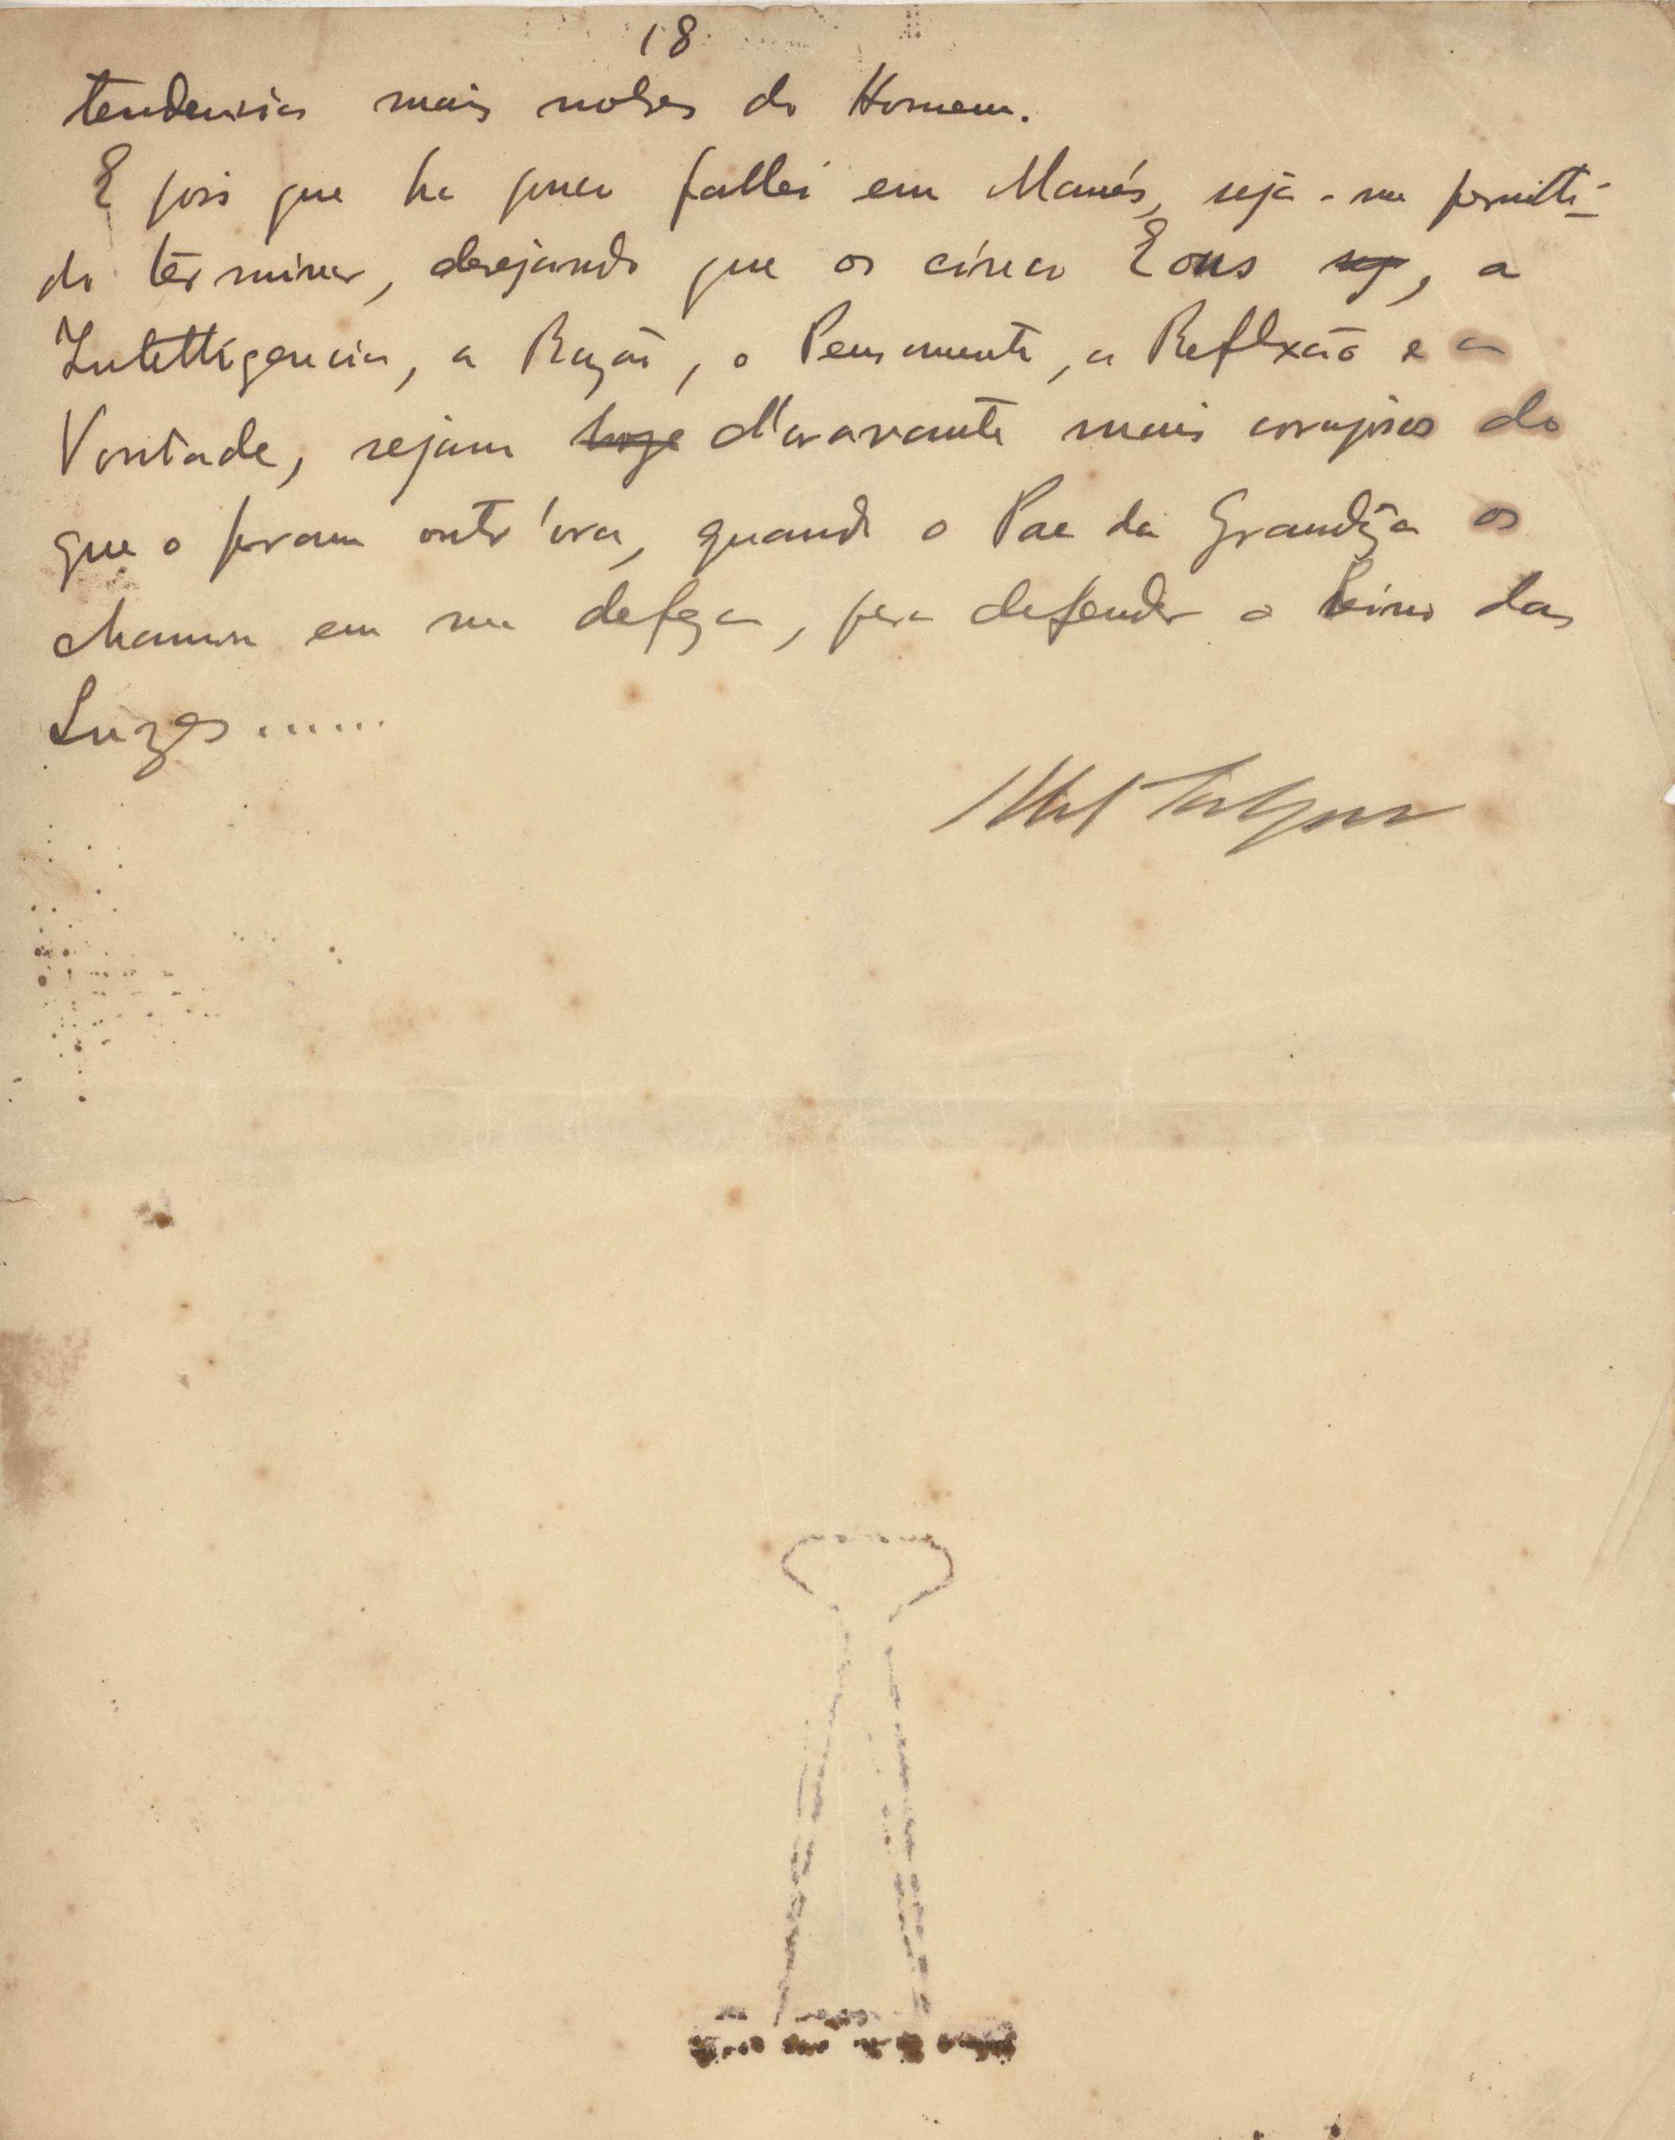 18
tendencias mais nobres do Homem.
E pois que ha pouco fallei em Manés, seja-me permitti-
do terminar, desejando que os cinco Eons , a
Intelligencia, a Razão, o Pensamento, a Reflexão e a
Vontade, sejam hoje d'oravante mais corajosos do
que o foram outr'ora, quando o Pae da Grandeza os
chamou em sua defeza, para defender o Reino das
Luzes......